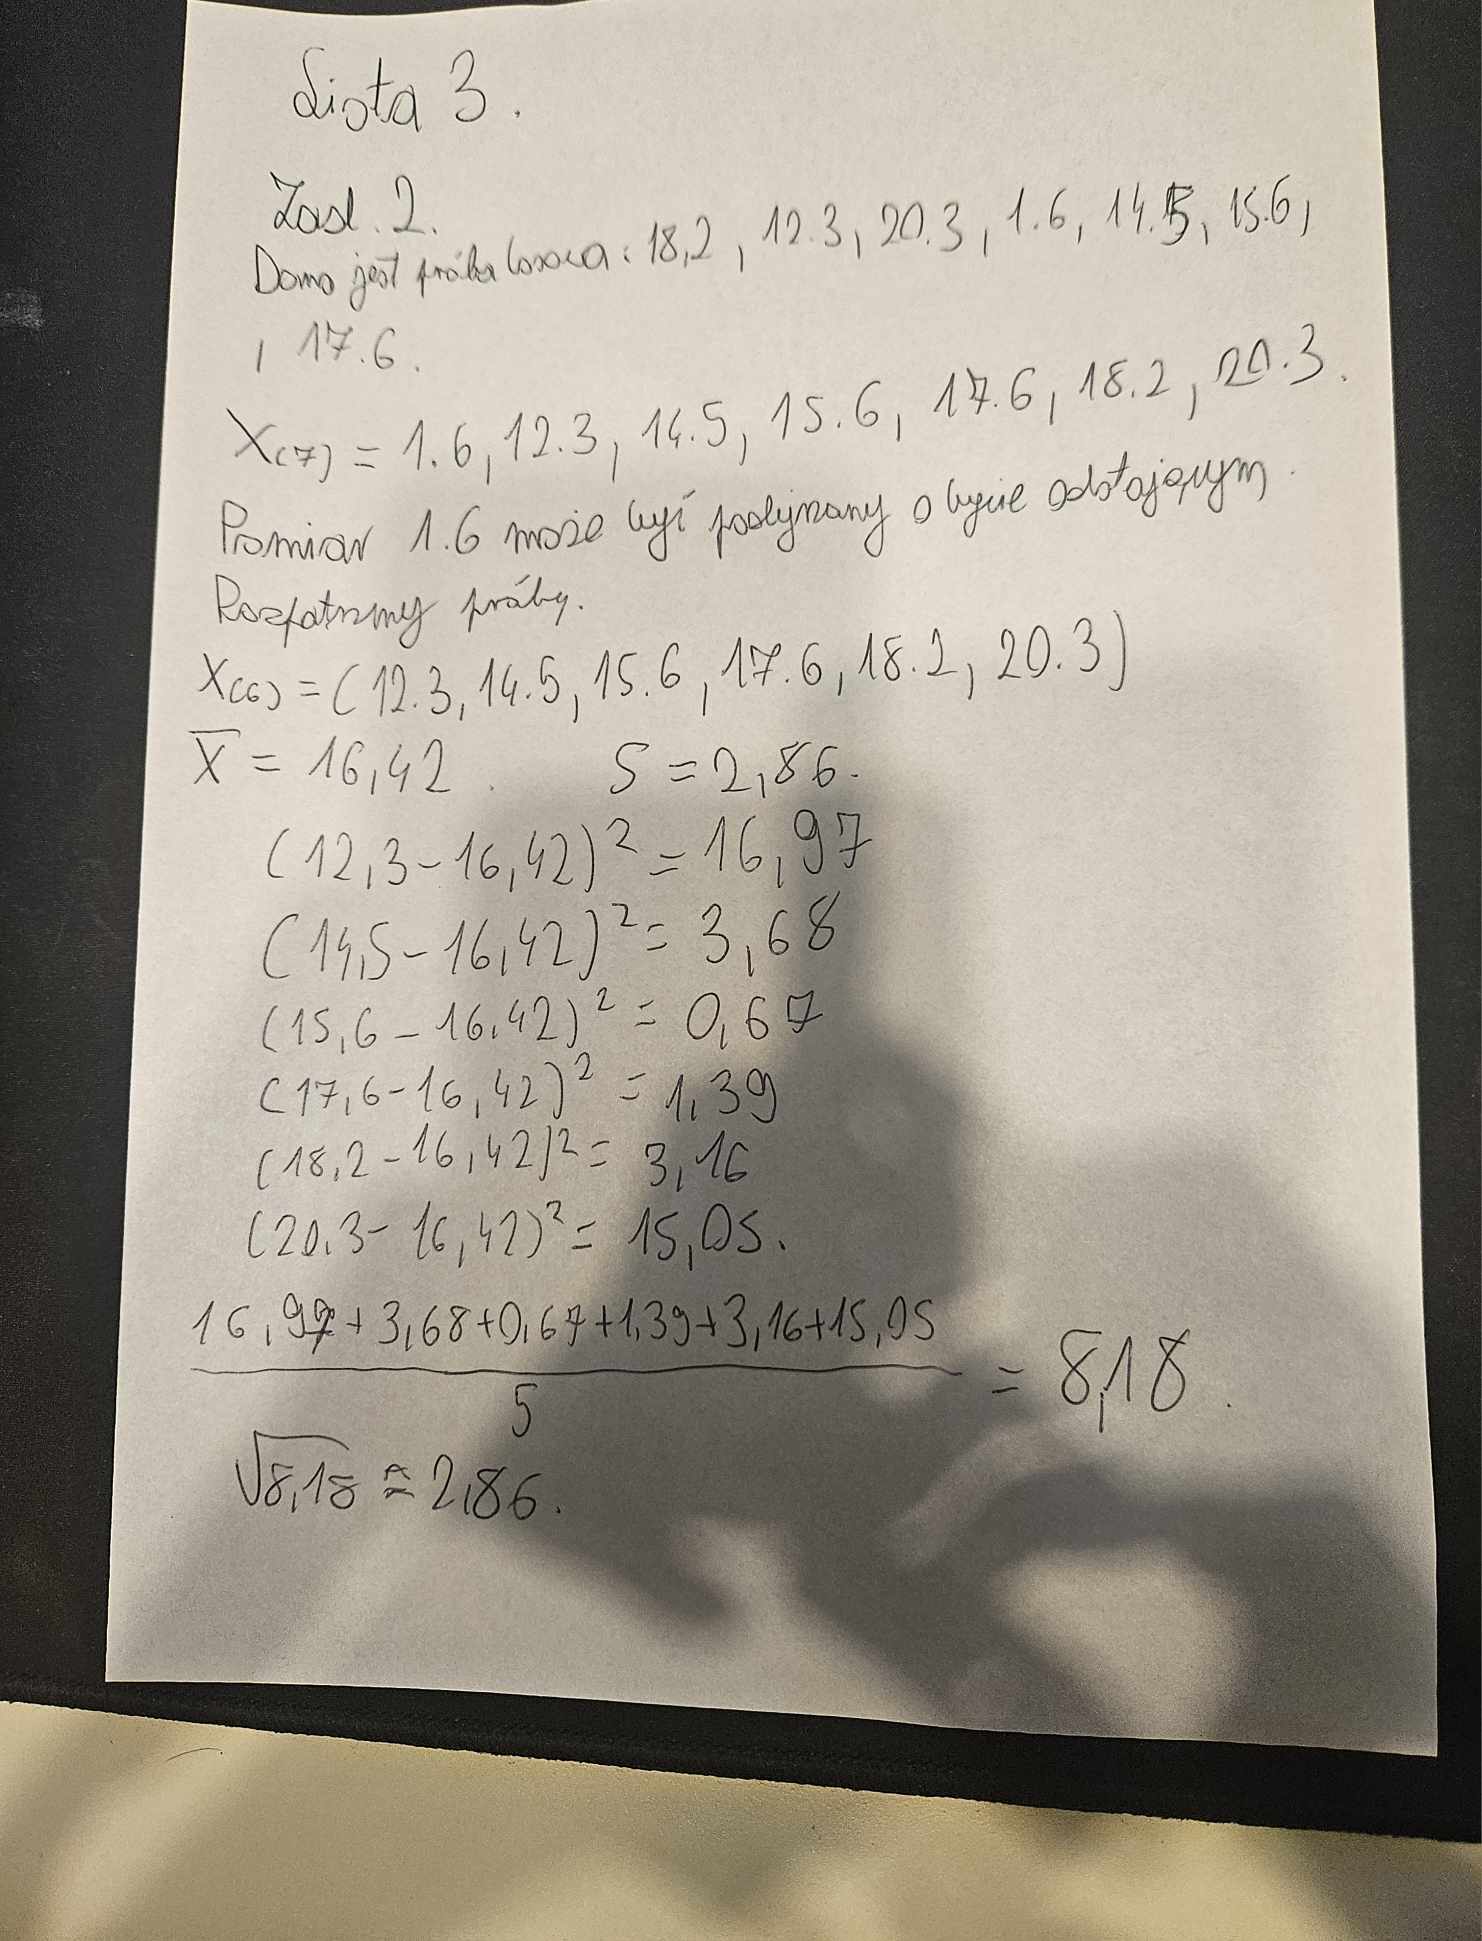 Lista 3.
Zad. 2.
Dana jest próba losowa: 18,2, 12.3, 20.3, 1.6, 14.5, 15.6,
, 17.6.
X(7) = 1.6, 12.3, 14.5, 15.6, 17.6, 18.2, 20.3.
Pomiar 1.6 może być podejrzany o bycie odstającym.
Rozpatrzmy próbę.
X(6) = (12.3, 14.5, 15.6, 17.6, 18.2, 20.3)
X̅ = 16,42. S = 2,86.
(12,3-16,42)² = 16,97
(14,5-16,42)² = 3,68
(15,6-16,42)² = 0,67
(17,6-16,42)² = 1,39
(18,2-16,42)² = 3,16
(20.3-16,42)² = 15,05.
16,97+3,68+0,67+1,39+3,16+15,05
5
= 8,18.
√8,18 ≈ 2,86.